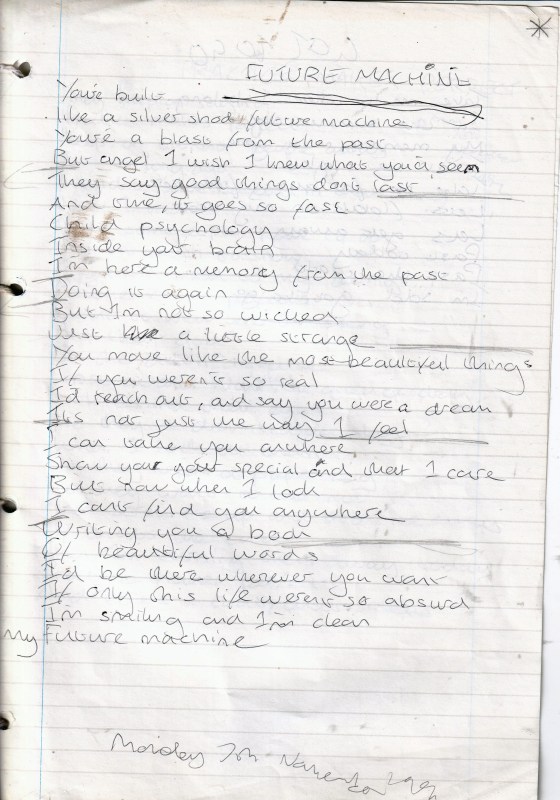 FUTURE MACHINE
You're built
like a silver shod future machine
You're a blast from the past
But angel I wish I knew what you'd seen
They say good things don't last
And time, it goes so fast
Child psychology
Inside your brain
I'm here a memory from the past
Doing it again
But I'm not so wicked
Just a little strange
You move like the most beautiful things
If you weren't so real
I'd reach out, and say you were a dream
It's not just the way I feel
I can take you anwhere
Show your your special and that I care
But now when I look
I can't find you anywhere
Writing you a book
Of beautiful words
I'd be there wherever you want
If only this life weren't so absurd
I'm smiling and I'm clean
My future machine
Monday